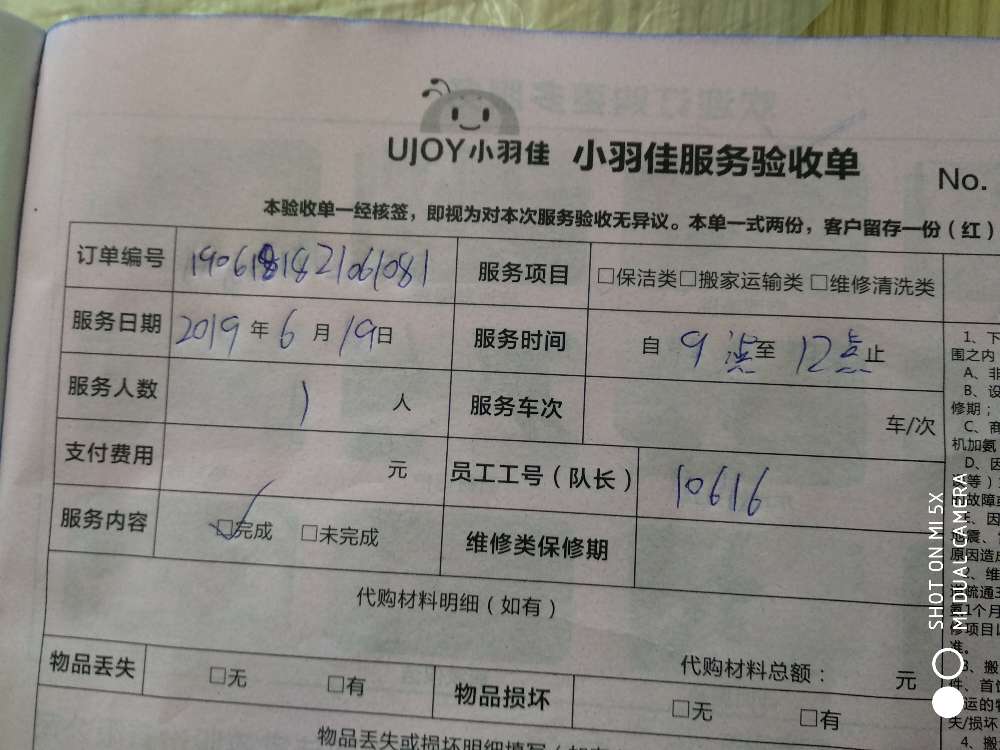 UJOY小羽佳 小羽佳服务验收单
No.
本验收单一经核签，即视为对本次服务验收无异议。本单一式两份，客户留存一份（红）
订单编号 190618182106081 服务项目 □保洁类□搬家运输类 □维修清洗类
服务日期 2019 年 6 月 19日 服务时间 自 9 点至 12点止
服务人数 1 人 服务车次 车/次
支付费用 元 员工工号（队长） 10616
服务内容 □完成 □未完成 维修类保修期
代购材料明细（如有）
代购材料总额： 元
物品丢失 □无 □有 物品损坏 □无 □有
1、下
围之内
A、非
B、设
修期；
C、商
机加氨
D、因
等）
故障
因
地震、
原因造成
2、维
疏通
1个月
修项目
准。
3、搬
件、首饰
运的物
失/损坏
4、搬
SHOT ON MI 5X
MI DUAL CAMERA